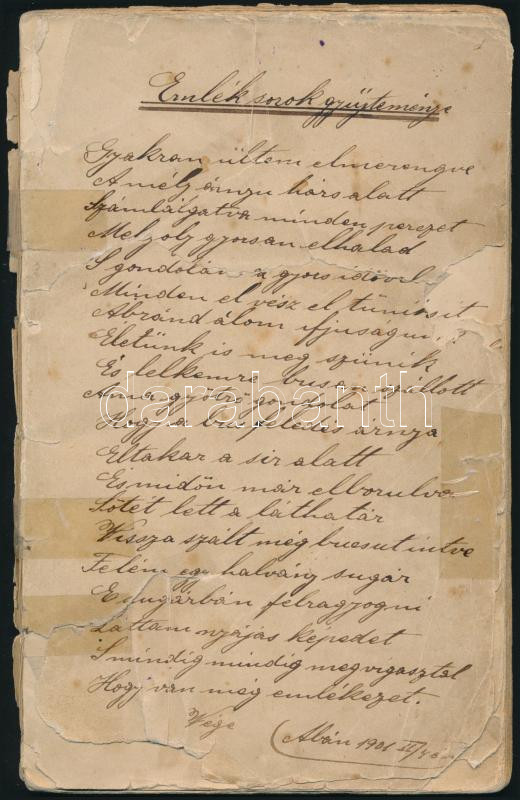 Emlék sorok gyüjteménye
Gyakran ültem elmerengve
A mély árnyu hárs alatt
Számlálgatva minden perczet
Mely oly gyorsan elhalad
S gondolám a gyors idővel
Minden el vész el tünik itt
Ábránd álom ifjuságu
Életünk is meg szünik
És lelkemre busan szállott
Ama gyötrő gondolat
Hogy a bus feledés árnya
Eltakar a sir alatt
És midőn már elborulva
Sötét lett a láthatár
Vissza szált még bucsut intve
Felém egy halvány sugár
E sugárbán felragyogni
Láttam nyájás képedet
S mindig mindig megvigasztal
Hogy van még emlékezet.
Vége
Abán 1901 II
darabanth.com